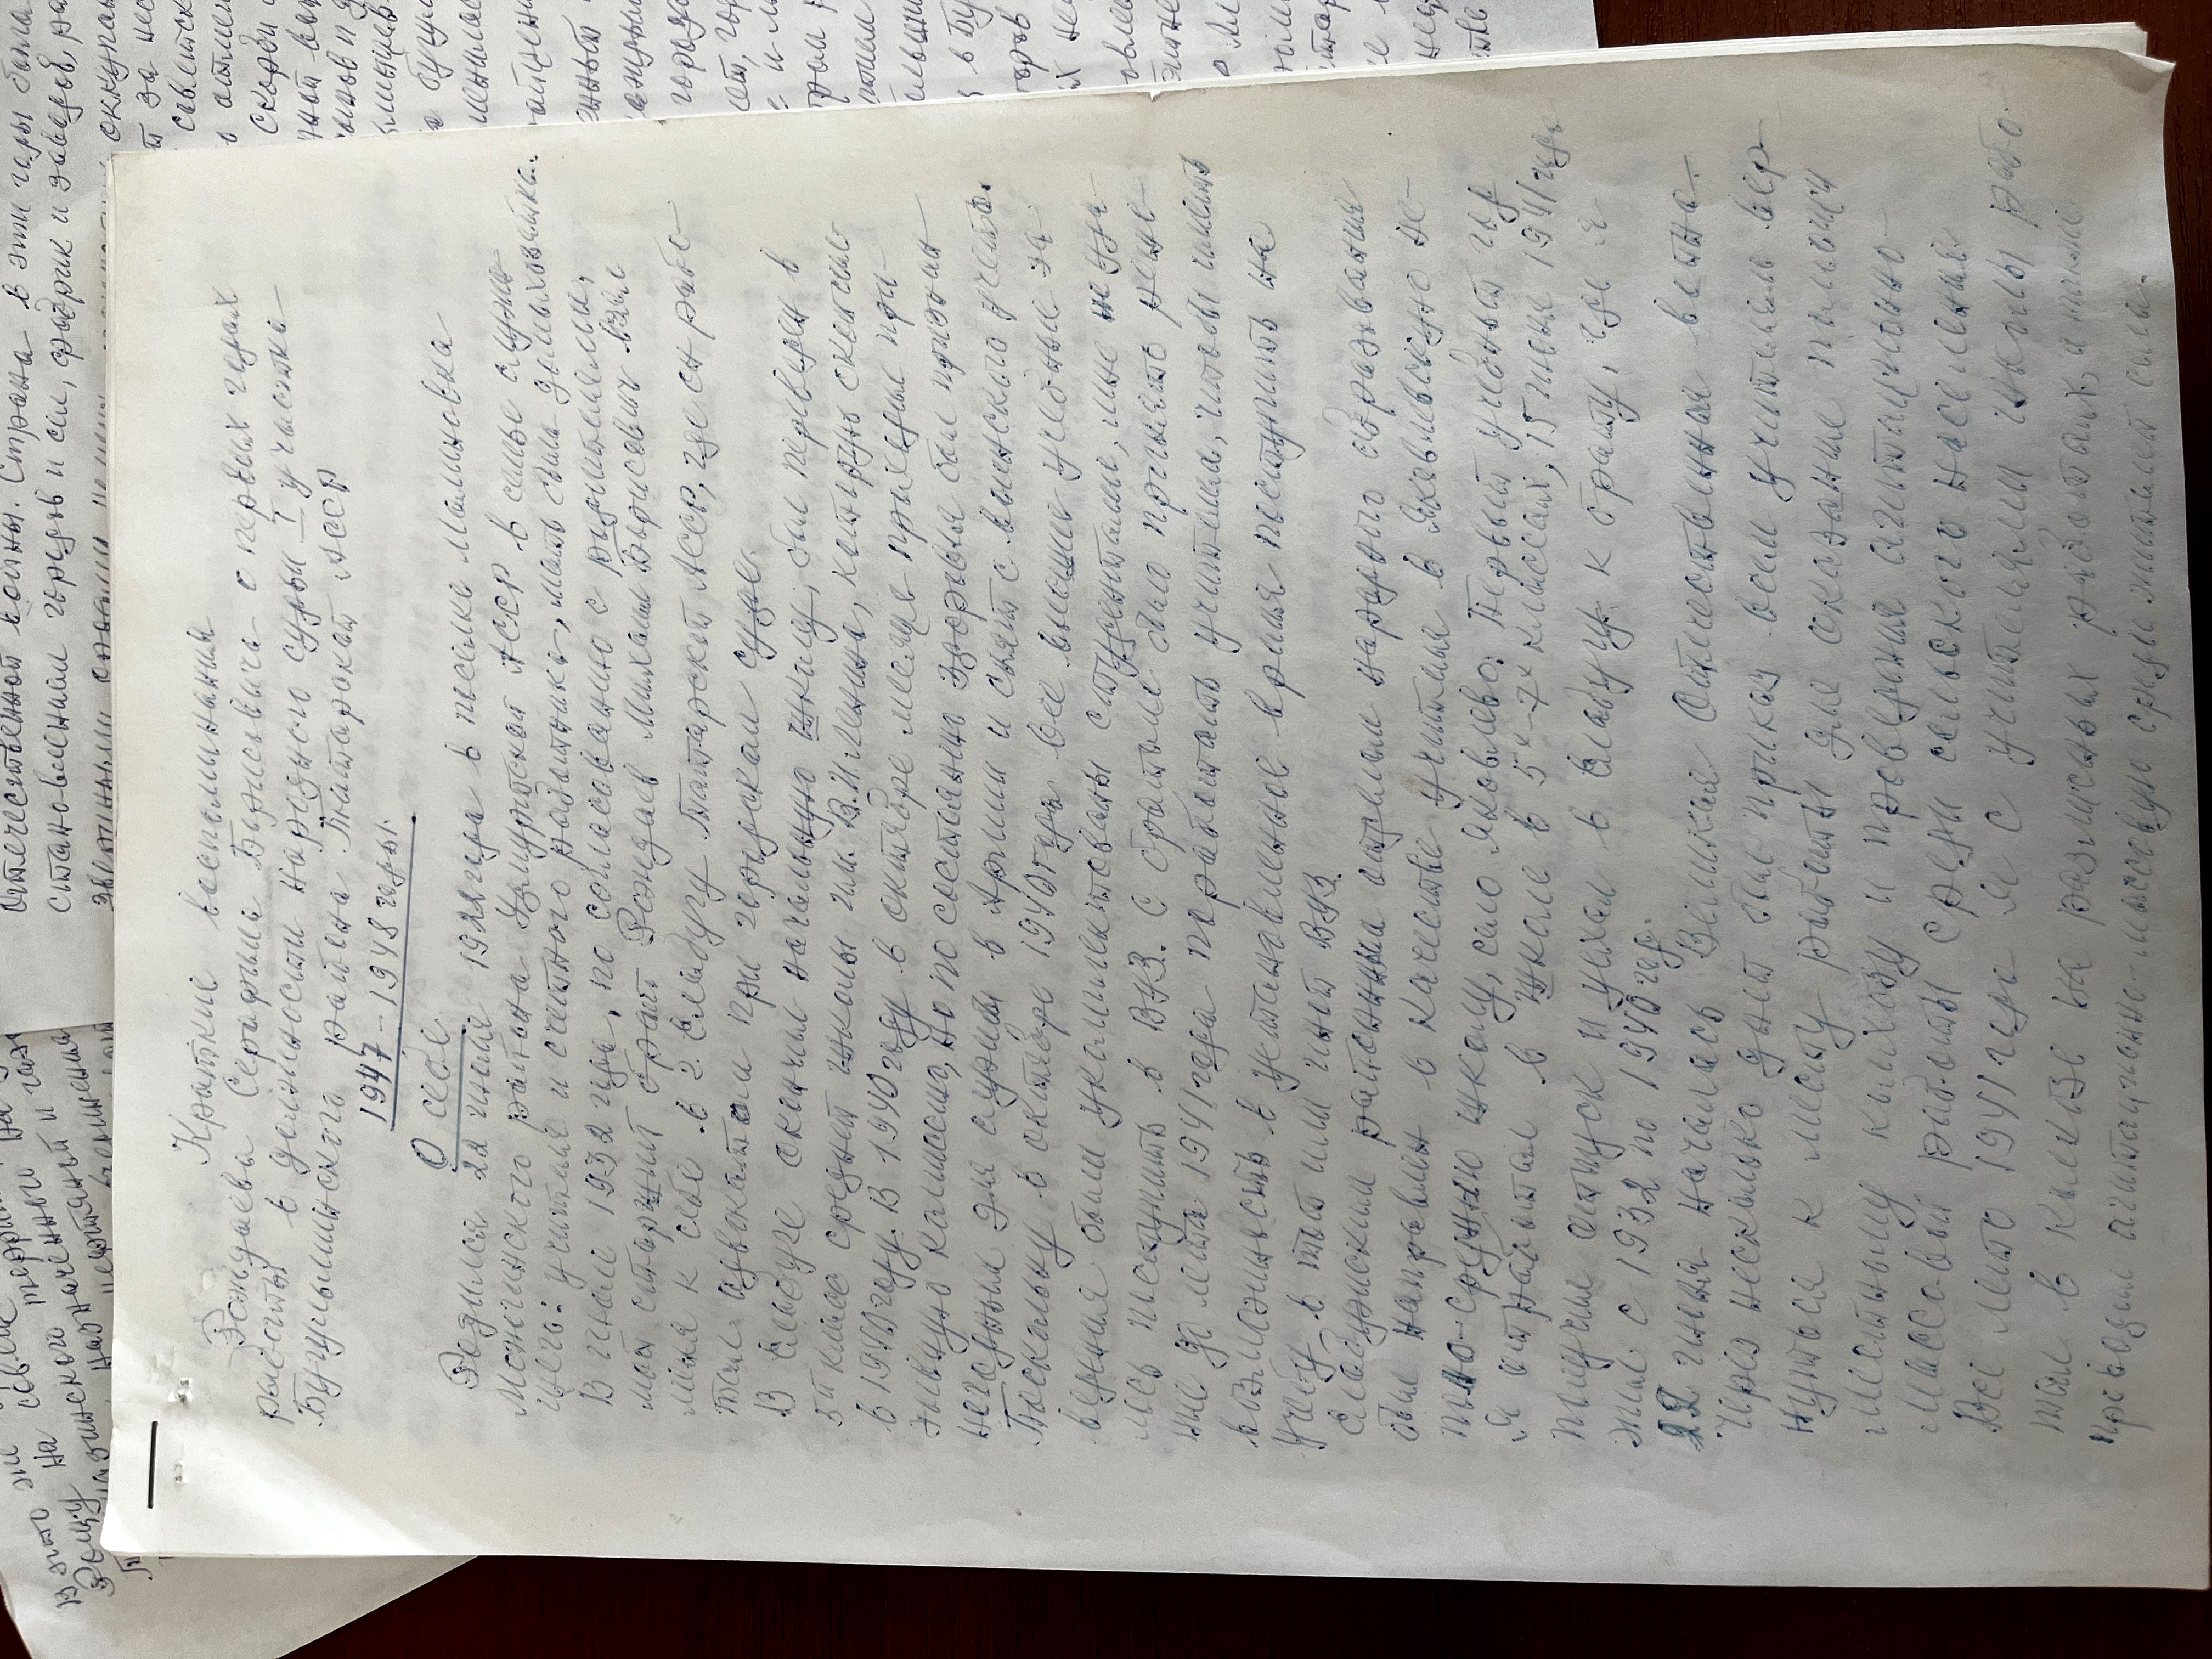 Краткие воспоминания
Рождаева Серафима Борисовича о первых годах
работы в должности народного судьи I участка
Бугульминского района Татарской АССР
1947-1948 годы.
О себе
Родился 22 июля 1922 года в поселке Малиновка
Можгинского района Удмуртской АССР в семье служа-
щего: учителя и счетного работника, мать была домохозяйка.
В июле 1932 года, по согласованию с родителями,
мой старший брат Рождаев Михаил Борисович взял
меня к себе в г. Елабугу Татарской АССР, где он рабо-
тал адвокатом при городском суде.
В Елабуге окончил начальную школу, был переведен в
5й класс средней школы им. В.И. Ленина, которую окончил
в 1940 году. В 1940 году в октябре месяце проходил при-
зывную комиссию, но по состоянию здоровья был признан
негодным для службы в Армии и снят с воинского учета.
Поскольку в октябре 1940 года все высшие учебные за-
ведения были укомплектованы студентами, мне не уда-
лось поступить в ВУЗ. С братом было принято реше-
ние до лета 1941 года поработать учителем, чтобы иметь
возможность в установленное время поступить на
учебу в тот или иной ВУЗ.
Елабужским районным отделом народного образования
был направлен в качестве учителя в Яковлевскую не-
полно-среднюю школу, село Яковлево. Первый учебный год
я отработал в школе в 5х-7х классах, 15 июня 1941 года
получил отпуск и уехал в Елабугу к брату, где я
жил с 1932 по 1940 год.
22 июня началась Великая Отечественная война.
Через несколько дней был приказ всем учителям вер-
нуться к месту работы для оказание помощи
местному колхозу и проведения агитационно-
массовой работы среди сельского населения.
Все лето 1941 года я с учителями школы рабо-
тал в колхозе на различных работах, а также
проводил агитационно-массовую среди жителей села.